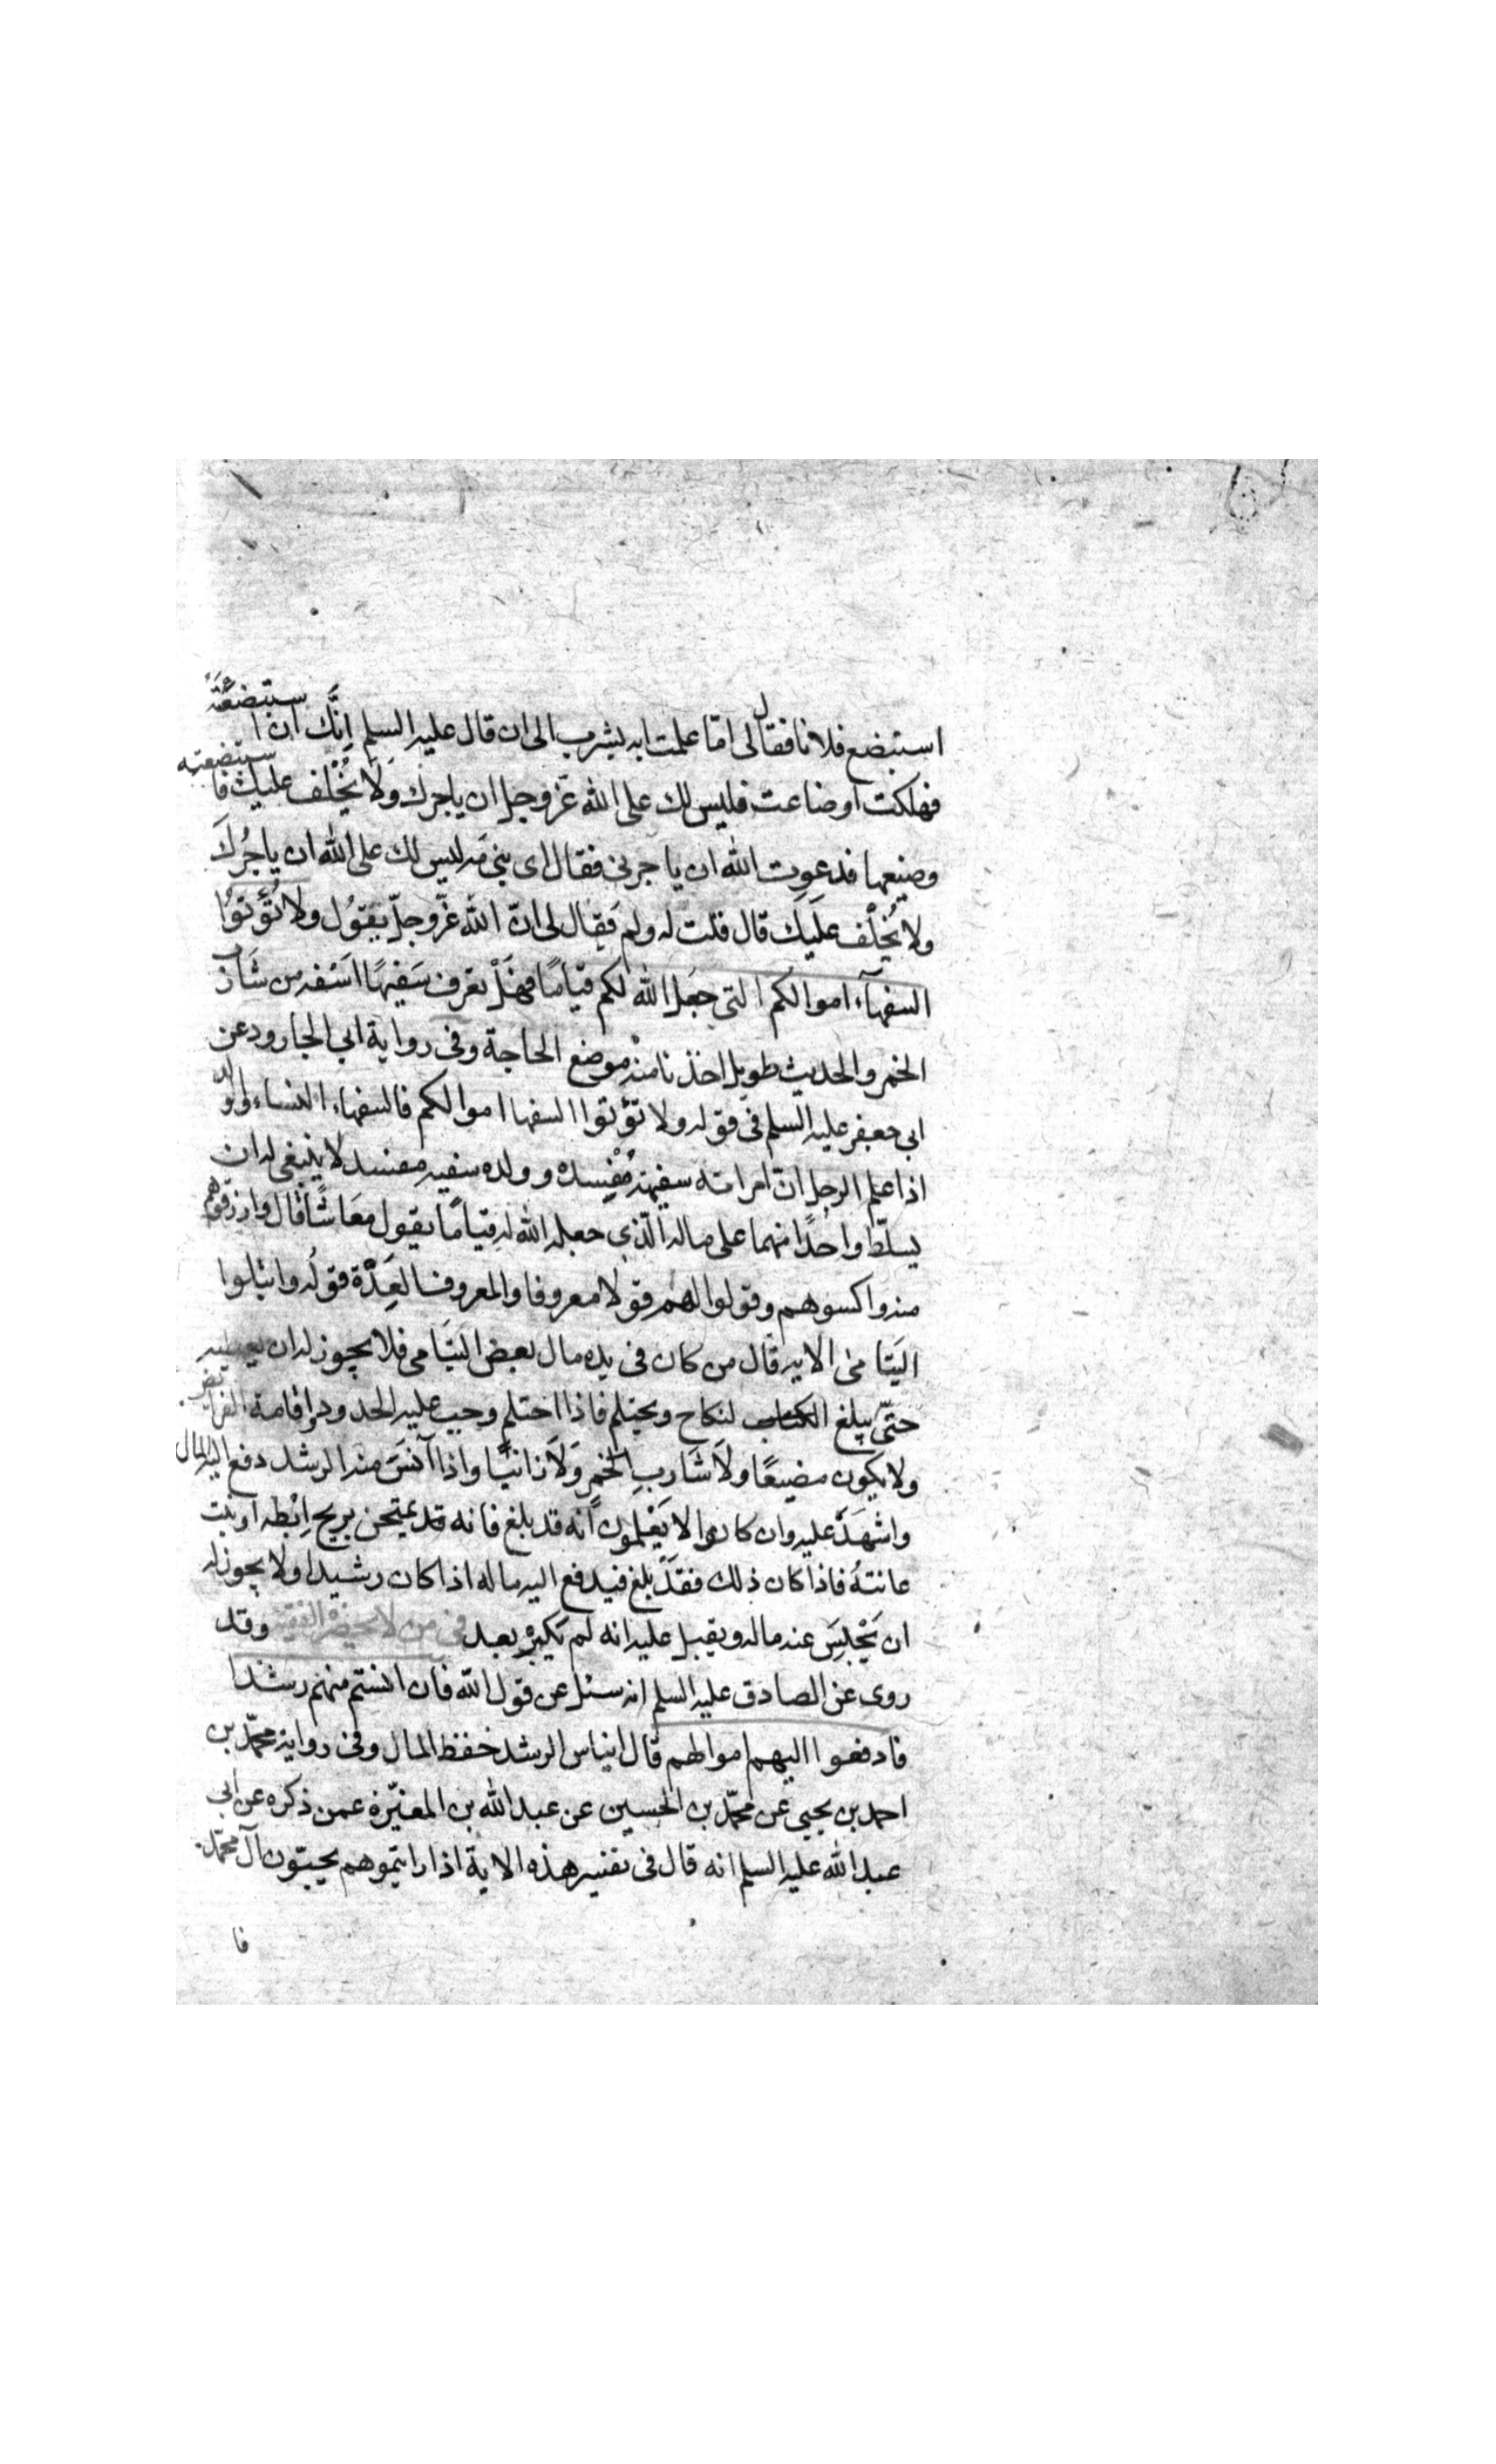 استبضع فلانا فقال لى اما علمت انه يشرب الى ان قال عليه السلم اِنَّك ان استبضعتَهُ
فهلكت او ضاعت فليس لك على الله عزّ وجل ان ياجرك وَلَا يُخْلف عليك فاستبضعته
وضيعها فدعوت الله ان ياجرنى فقال اى بنى مه ليس لك على الله ان ياجُرُكَ
ولا يُخْلف عَلَيكَ قال قلت له ولم فَقال لى انّ الله عزّ وجلّ يقوُل ولا تُؤْتوُا
السفهآء اموالكم التى جعَل الله لكم قيامًا فهَلْ تعرف سَفيهًا اسَفه من شَارب
الخمر والحديث طويل اخذنا منه موضع الحاجة وفى رواية ابى الجارود عن
ابى جعفر عليه السلم فى قوله ولا تؤتوا السفها اموالكم فالسفهاء النساء والولد
اذا علم الرجل انّ امراته سفيهة مُفْسِده وولده سفيه مفسد لا ينبغى له ان
يسلّط واحدًا منهما على ماله الّذي جعله الله له قيامًا يقول معَاشًا قال وارزقوهم
منه واكسوهم وقولوا لهم قولا معروفا والمعروف العِدّة قولُه وابتلوا
اليَتامى الايه قال من كان فى يده مال بعض اليتَامى فلا يجوز له ان يعطيه
حتّى يبلغ النكاح ويحتلم فاذا احتلم وجب عليه الحدود واقامة الفرايض
ولا يكون مضيعًا ولَا شَاربِ الخمرِ وَلَا زانيًا واذا آنسَ منه الرشد دفع اليه المال
واشهَدَ عليه وان كانوا لا يَعْلمون انّه قد بلغ فانه قد يمتحن بريح اِبْطِه او نبت
عانتهُ فاذا كان ذلك فقَدْ بلغ فيدفع اليه ماله اذا كان رشيدا ولا يجوز له
ان يَحْبِسَ عنه ماله ويقبل عليه انه لم يَكْبُرْ بعد فى من لا يحضره الفقيه وقد
روى عن الصادق عليه السلم انه سئل عن قول الله فان انستم منهم رشدا
فادفعوا اليهم اموالهم قال ايناس الرشد حفظ المال وفى رواية محمّد بن
احمد بن يحيى عن محمّد بن الحسين عن عبد الله بن المغيّرة عمن ذكره عن ابى
عبد الله عليه السلم انه قال فى تفسير هذه الاية اذا رايتموهم يحبّون آل محمّد
فا